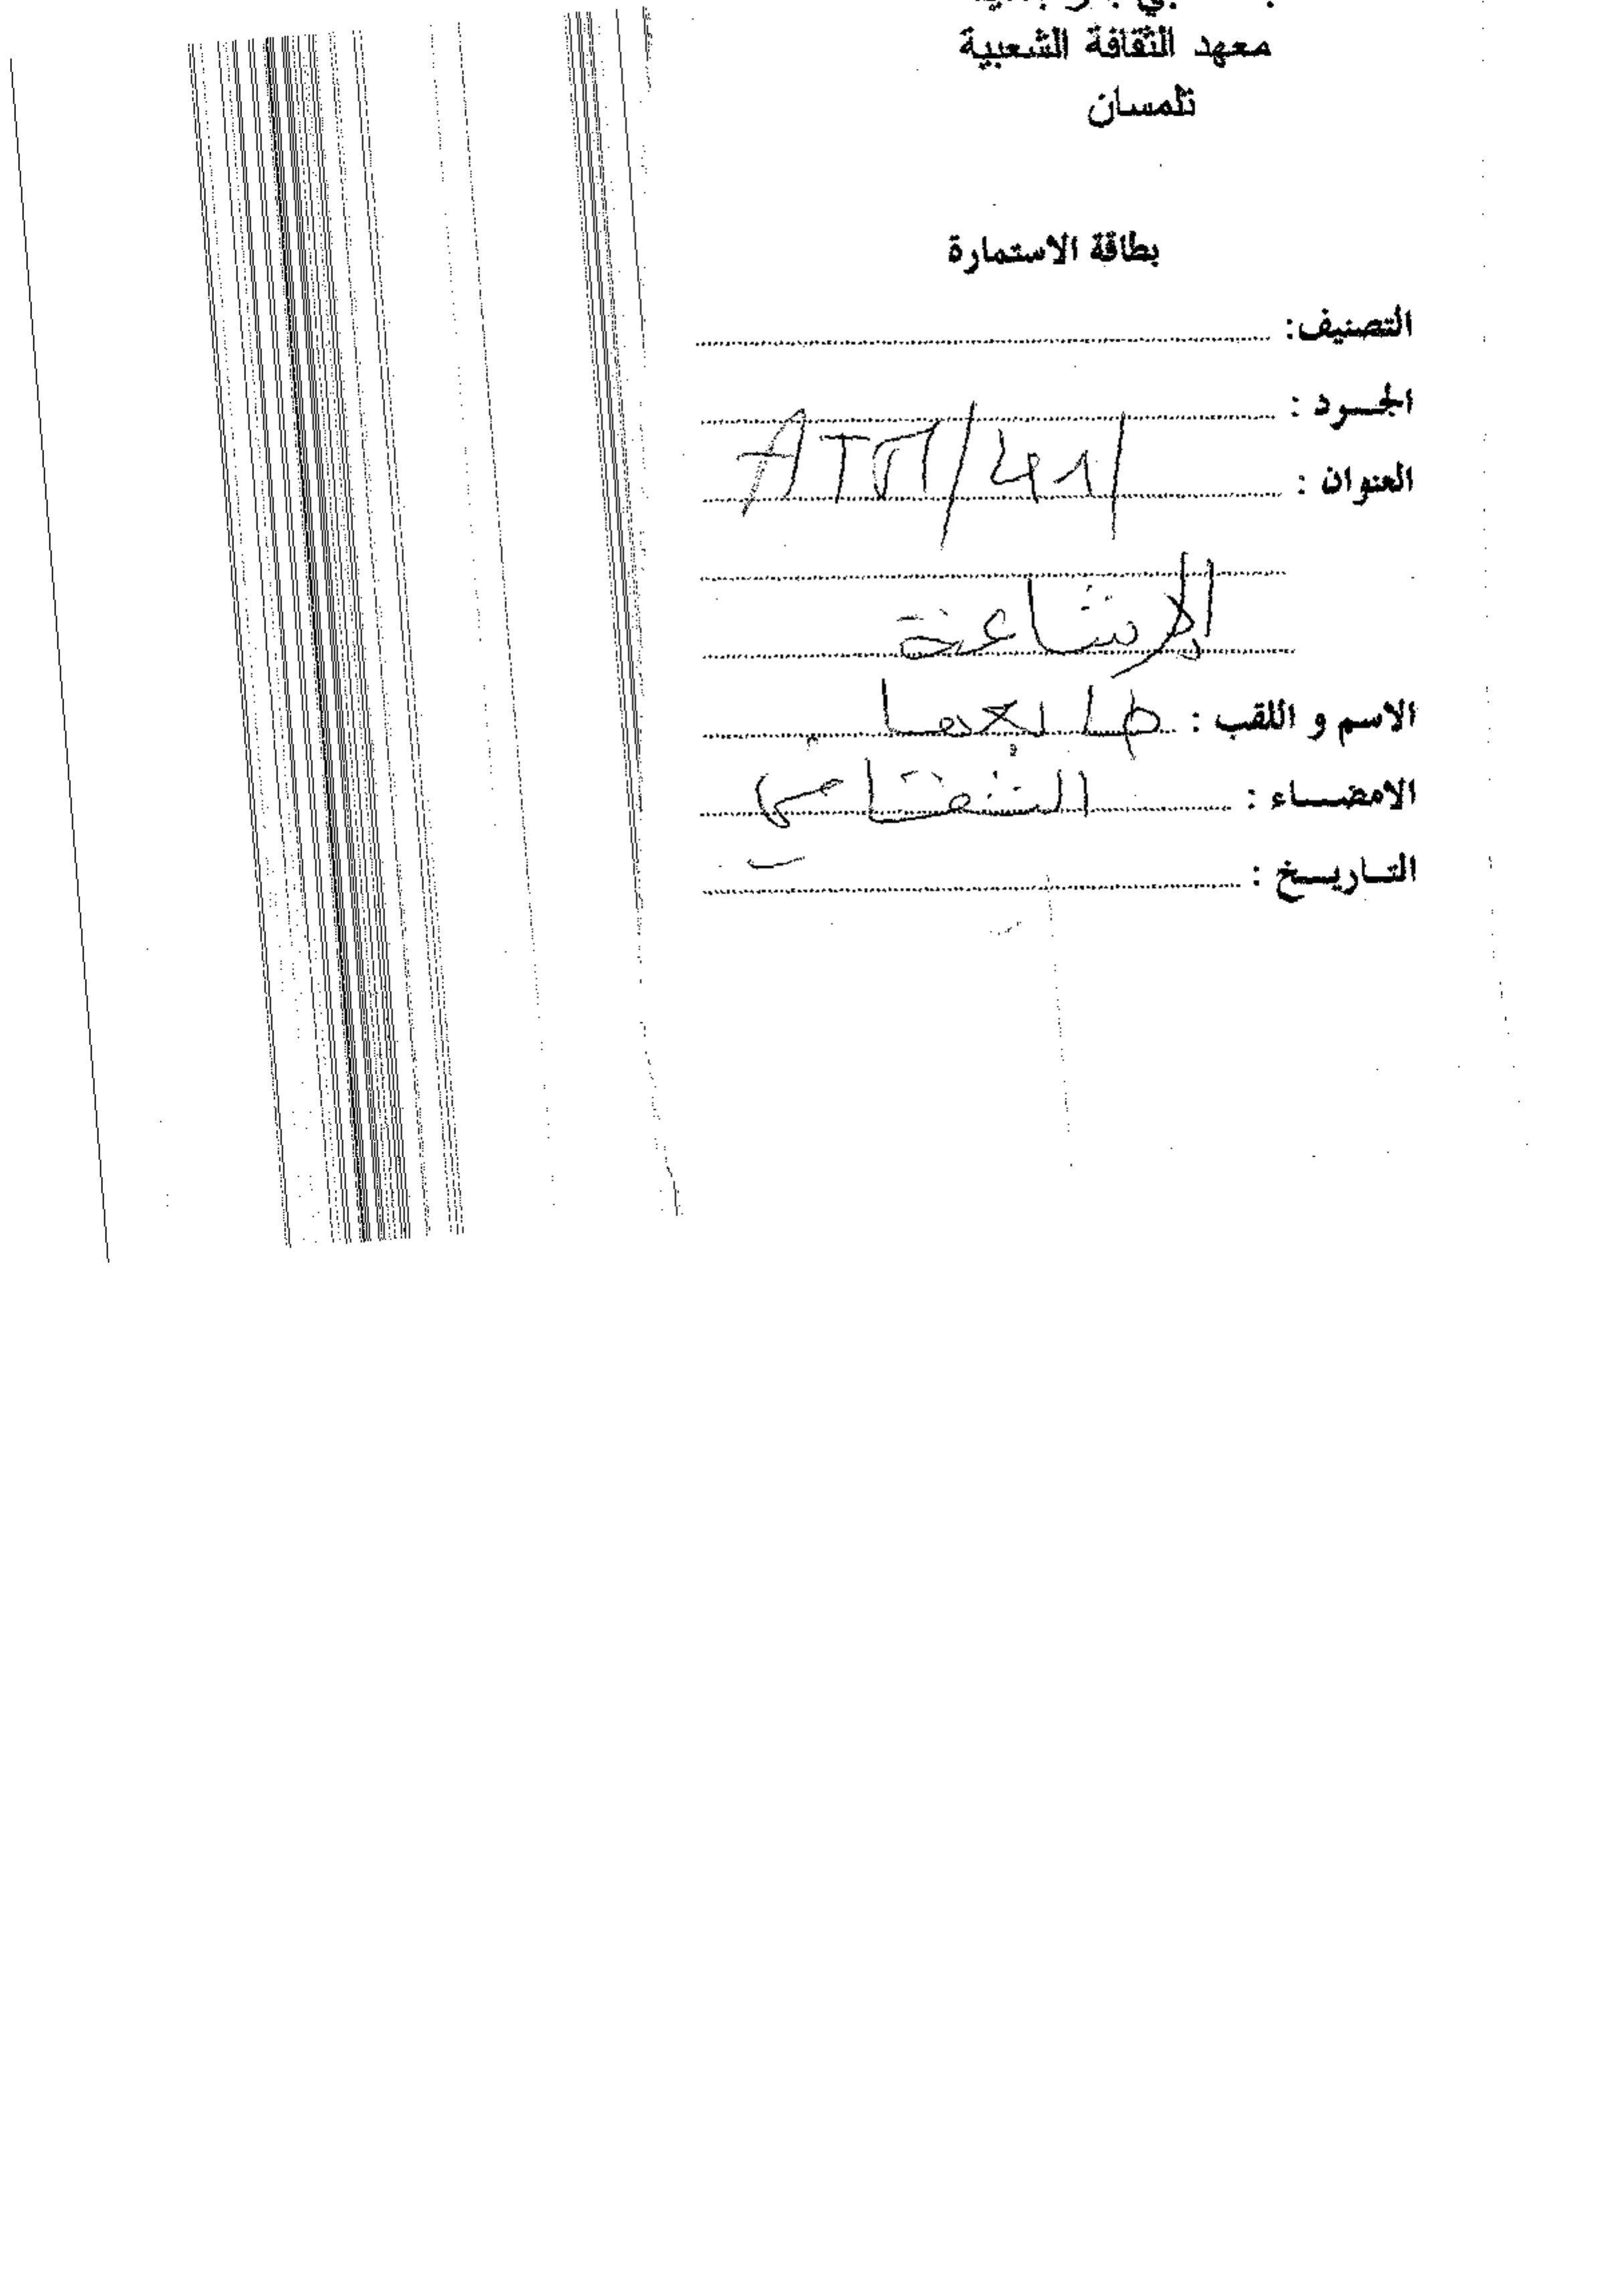 معهد الثقافة الشعبية
تلمسان
بطاقة الاستمارة
التصنيف:
الجرد :
العنوان :
ATM/41/
الإشاعة
الاسم و اللقب : طابعها
الامضاء : الثقافي
التاريخ :